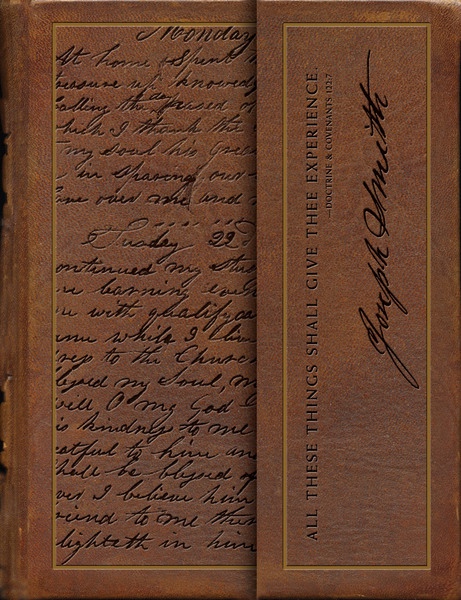 Monday
At home Spent
treasure up knowed
calling the day passed of
which I thank the
my soul his Grea
in sparing our
over me and
Tusday 22d
continued my stud
learning
with qualifyca
while I live
to the Church
my Soul, m
will, O my God
is kindness to me
to him an
shall be blessed of
I believe him
friend to me
lighteth in him
ALL THESE THINGS SHALL GIVE THEE EXPERIENCE.
—DOCTRINE & COVENANTS 122:7
Joseph Smith